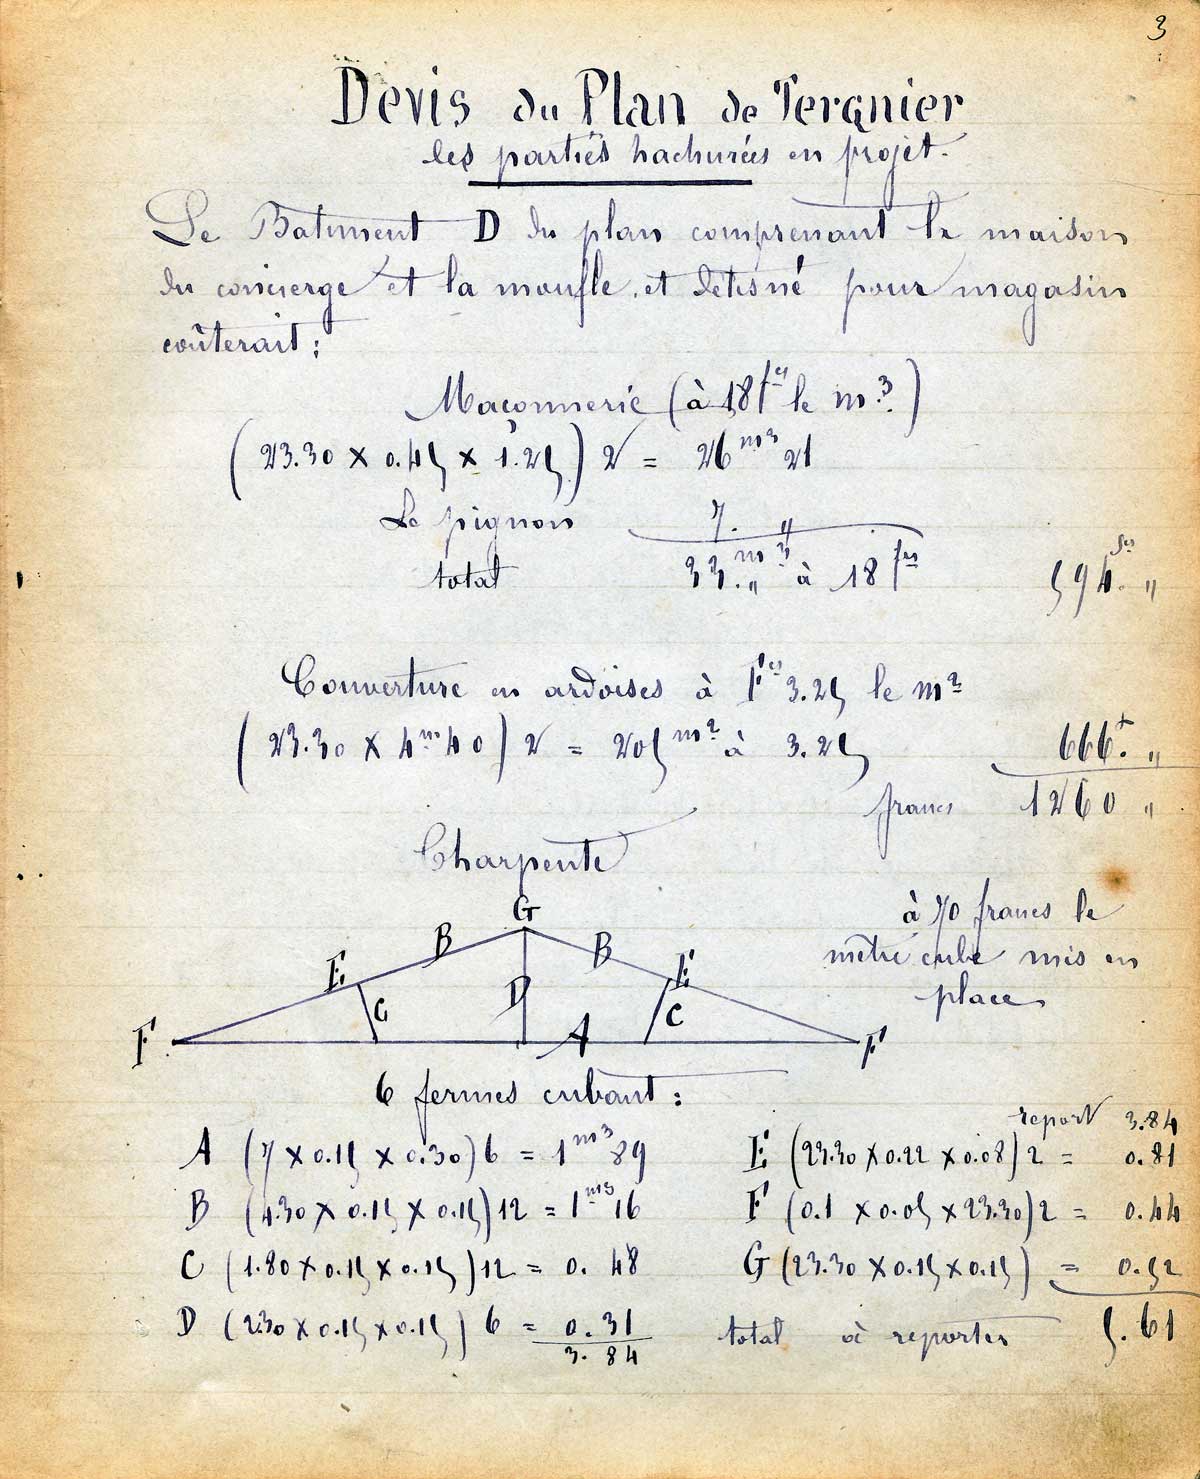 3
Devis du Plan de Tergnier
les parties hachurées en projet.
Le Batiment D du plan comprenant la maison
du concierge et la moufle, et détisné pour magasin
coûterait :
Maçonnerie (à 18 frs le m.3.)
(23.30 × 0.45 × 1.25) 2 = 26 m3 21
Le pignon 7. "
total 33. m3 " à 18 frs 594. frs "
Couverture en ardoises à Frs 3.25 le m2
(23.30 × 4m40) 2 = 205 m2 à 3.25 666f. "
francs 1260 "
Charpente
à 70 francs le
mètre cube mis en
place
G
B B
E E
C D C
F A F
6 fermes cubant :
A (7 × 0.15 × 0.30) 6 = 1 m3 89
B (4.30 × 0.15 × 0.15) 12 = 1 m3 16
C (1.80 × 0.15 × 0.15) 12 = 0. 48
D (2.30 × 0.15 × 0.15) 6 = 0.31
3. 84
report 3.84
E (23.30 × 0.22 × 0.08) 2 = 0.81
F (0.1 × 0.05 × 23.30) 2 = 0.44
G (23.30 × 0.15 × 0.15) = 0.52
total à reporter 5.61